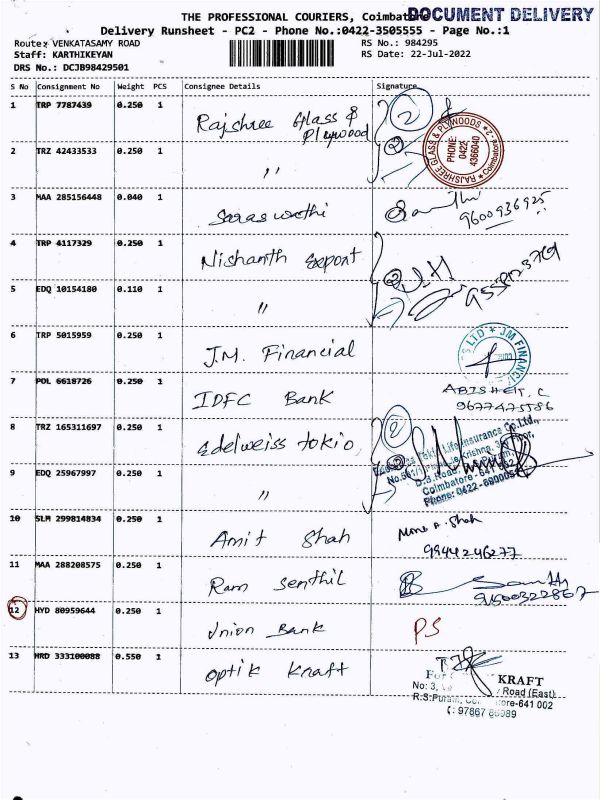 THE PROFESSIONAL COURIERS, Coimbatore
DOCUMENT DELIVERY
Delivery Runsheet - PC2 - Phone No.:0422-3505555 - Page No.:1
Route: VENKATASAMY ROAD RS No.: 984295
Staff: KARTHIKEYAN RS Date: 22-Jul-2022
DRS No.: DCJB98429501
S No Consignment No Weight PCS Consignee Details Signature
1 TRP 7787439 0.250 1 Rajshree Glass & Plywood 2
RAJSHREE GLASS & PLYWOODS * Coimbatore - 2.
PHONE:
0422
4366040
2 TRZ 42433533 0.250 1 "
3 MAA 285156448 0.040 1 Saraswathi
9600936925
4 TRP 4117329 0.250 1 Nishanth Export 2
5 EDQ 10154180 0.110 1 "
6 TRP 5015959 0.250 1 J.M. Financial
7 POL 6618726 0.250 1 IDFC Bank
8 TRZ 165311697 0.250 1 Edelweiss tokio, 2
Life Insurance Co.Ltd.,
Coimbatore - 641
Phone: 0422-
9 EDQ 25967997 0.250 1 "
10 SLM 299814834 0.250 1 Amit Shah
9944246277
11 MAA 288208575 0.250 1 Ram Senthil
9500322867
12 HYD 80959644 0.250 1 Union Bank PS
13 HRD 333100088 0.550 1 Optik Kraft
For KRAFT
No: 3, Road (East)
R.S.Puram, ore-641 002